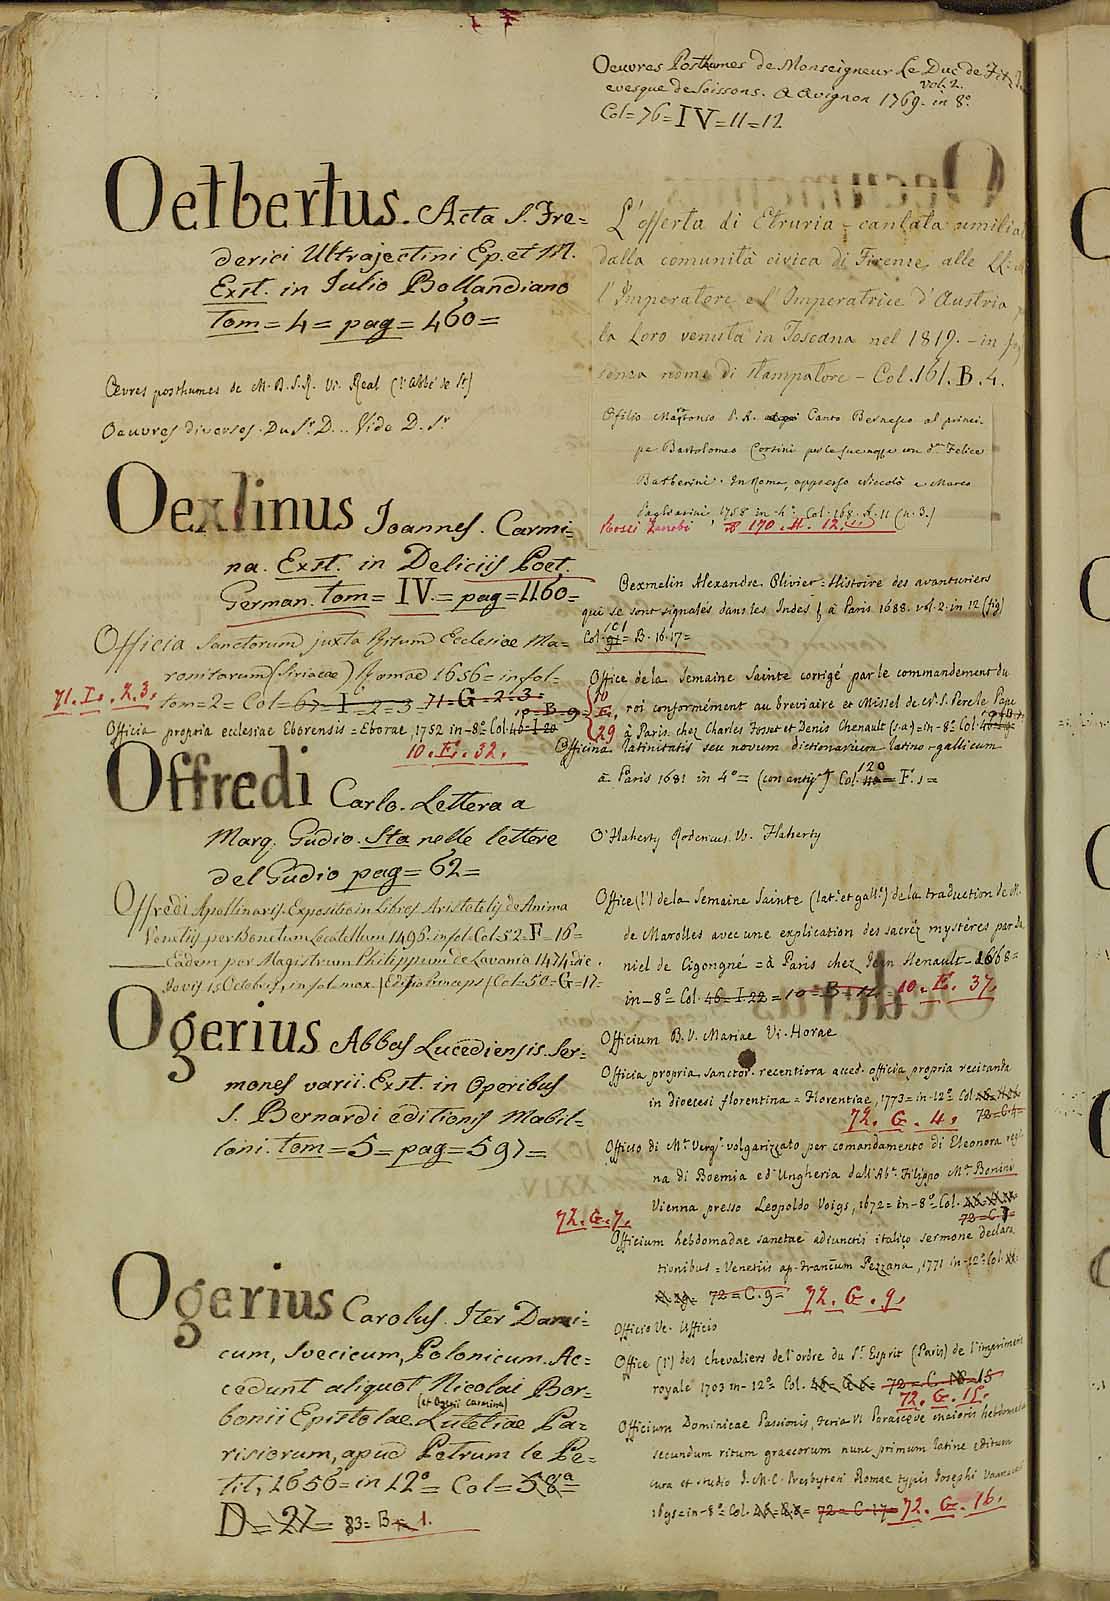 Oetbertus. Acta S. Fre=
derici Ultrajectini Ep. et M.
Exst. in Julio Bollandiano
tom = 4 = pag = 460 =
Œvres posthumes de M. D. S. R. Vi. Real (l'abbé de St)
Oeuvres diverses. Du Sr. D... Vide D. Sr
Oexlinus Joannes. Carmi=
na. Exst. in Deliciis Poet.
German. tom = IV. = pag = 1160 =
Officia Sanctorum juxta Ritum Ecclesiae Ma=
ronitarum (Siriacae) Romae 1656 = in fol =
71. I. 2. 3. tom = 2 = Col = 67 = I = 2 = 3 71 = G = 2. 3.
Officia propria eclesiae Eborensis = Eborae, 1752 in = 8º Col. 46 = I. 20 10 = B = 9 =
10. E. 32.
Offredi Carlo. Lettera a
Marq. Gudio. Sta nelle lettere
del Gudio pag = 62 =
Offredi Apollinaris. Expositio in Libros Aristotelis de Anima
Venetiis per Bonetum Locatellum 1496. in fol = Col = 52 = F = 16 =
Eadem per Magistrum Philippum de Lavania 1474. die
Jovis 15 Octobris, in fol. max. (Editio Princeps) Col = 50 = G = 17 =
Ogerius Abbas Lucediensis. Ser=
mones varii. Exst. in Operibus
S. Bernardi editionis Mabil=
loni. tom = 5 = pag = 597 =
Ogerius Carolus. Iter Dani=
cum, Svecicum, Polonicum. Ac=
cedunt aliquot Nicolai Bor=
(et Ogerii Carmina)
bonii Epistolae. Lutetiae Pa=
risiorum, apud Petrum le Pe=
tit, 1656 = in 12º = Col = 58ª
D = 27 = 33 = B = 1.
Oeuvres Posthumes de Monseigneur Le Duc de Fitz
evesque de Soissons. A Avignon 1769. vol. 2. in 8º
Col = 76 = IV = 11 = 12
L'offerta di Etruria - cantata umilia
dalla comunità civica di Firenze alle LL.
l'Imperatore e l'Imperatrice d'Austria
la loro venuta in Toscana nel 1819. - in
senza nome di stampatore - Col. 161. B. 4.
Ofilio Marronio P. A. Canto Bernesco al princi=
pe Bartolomeo Corsini per le sue nozze con Dª Felice
Barberini. In Roma, appresso Niccolò e Marco
Pagliarini, 1758 in - 4º. Col. 168. A. 11 (n. 3.)
Rossi Zanobi 170. H. 12.
Oexmelin Alexandre Olivier = Histoire des avanturiers
qui se sont signalés dans les Indes à Paris 1688. vol. 2. in 12 (fig)
Col. = B. 16. 17 =
Office de la Semaine Sainte corrigé par le commandement du
10 E. 29 roi conformement au breviaire et Missel de N. S. Pere le Pape
à Paris chez Charles Fosset et Denis Chenault (s. a) = in - 8º Col.
Officina latinitatis seu novum dictionarium latino-gallicum
à Paris 1681 in 4º = Col. 120 = F. 1 =
O'Flaherty Rodericus. Vi. Flaherty
Office (l') de la Semaine Sainte (lat. et gall.) de la traduction de M.
de Marolles avec une explication des sacréz mystères par Da
niel de Cigongné = à Paris chez Jean Henault 1668 =
in - 8º Col. 46 = I. 22 = 10 = B = 11 10. E. 37.
Officium B. V. Mariae Vi. Horae
Officia propria sanctor. recentiora acced. officia propria recitanda
in dioecesi florentina = Florentiae, 1773 = in - 12º Col.
72. G. 4. 72 = C. 4 =
Officio di Mª Vergª volgarizzato per comandamento di Eleonora regi
na di Boemia ed' Ungheria dall'Abe. Filippo Mª Bonini
Vienna presso Leopoldo Voigs, 1672 = in - 8º Col.
72. G. 7. 72 = C. 7 =
Officium hebdomadae sanctae adiunctis italico sermone declara
tionibus = Venetiis ap. Francum Pezzana, 1771 in - 12º Col.
72 = C. 9 = 72. G. 9.
Officio Ve. Ufficio
Office (l') des chevaliers de l'ordre du St. Esprit (Paris) de l'imprimerie
royale 1703 in - 12º Col. 72 = C. 15
72. G. 15.
Officium Dominicae Passionis, feria VI Parasceve maioris hebdomadae
secundum ritum graecorum nunc primum latine editum
cura et studio J. M. C. Presbyteri Romae typis Josephi
1695 = in - 8º Col. 72 = C. 17 = 72. G. 16.